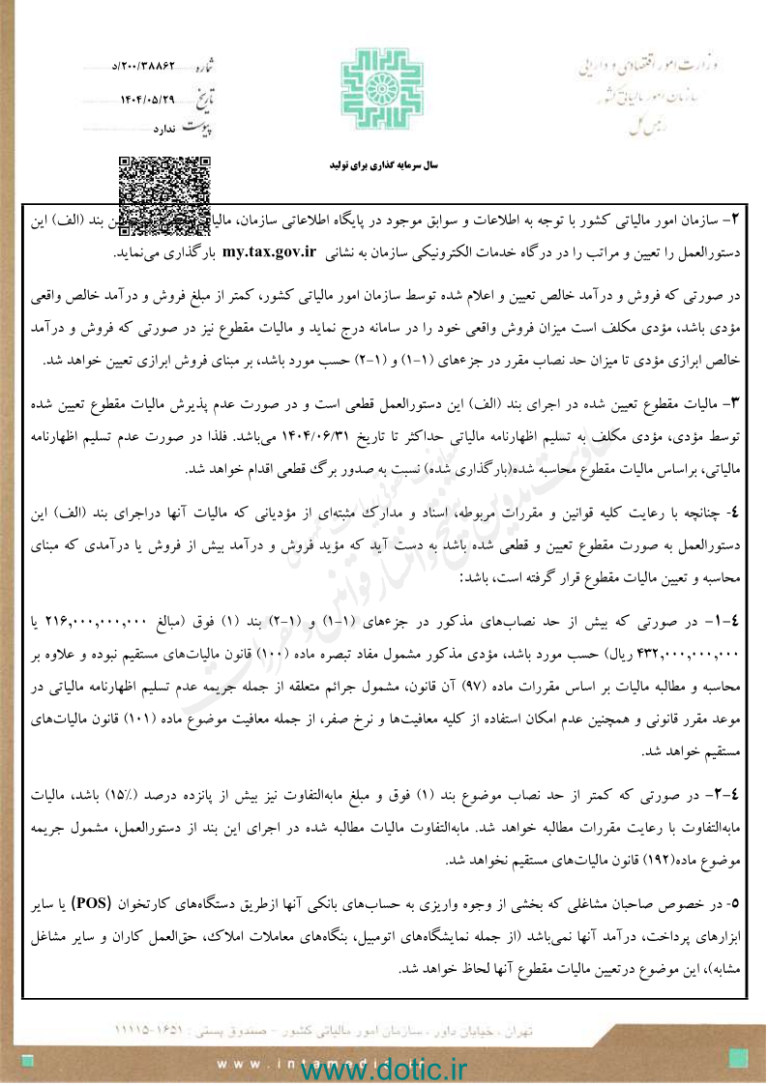 وزارت امور اقتصادی و دارایی
سازمان امور مالیاتی کشور
رئیس کل
شماره ۲۰۰/۳۸۸۶۲/د
تاریخ ۱۴۰۴/۰۵/۲۹
پیوست ندارد
سال سرمایه گذاری برای تولید
۲- سازمان امور مالیاتی کشور با توجه به اطلاعات و سوابق موجود در پایگاه اطلاعاتی سازمان، بند (الف) این
دستورالعمل را تعیین و مراتب را در درگاه خدمات الکترونیکی سازمان به نشانی my.tax.gov.ir بارگذاری می‌نماید.
در صورتی که فروش و درآمد خالص تعیین و اعلام شده توسط سازمان امور مالیاتی کشور، کمتر از مبلغ فروش و درآمد خالص واقعی
مؤدی باشد، مؤدی مکلف است میزان فروش واقعی خود را در سامانه درج نماید و مالیات مقطوع نیز در صورتی که فروش و درآمد
خالص ابرازی مؤدی تا میزان حد نصاب مقرر در جزءهای (۱-۱) و (۱-۲) حسب مورد باشد، بر مبنای فروش ابرازی تعیین خواهد شد.
۳- مالیات مقطوع تعیین شده در اجرای بند (الف) این دستورالعمل قطعی است و در صورت عدم پذیرش مالیات مقطوع تعیین شده
توسط مؤدی، مؤدی مکلف به تسلیم اظهارنامه مالیاتی حداکثر تا تاریخ ۱۴۰۴/۰۶/۳۱ می‌باشد. فلذا در صورت عدم تسلیم اظهارنامه
مالیاتی، براساس مالیات مقطوع محاسبه شده(بارگذاری شده) نسبت به صدور برگ قطعی اقدام خواهد شد.
٤- چنانچه با رعایت کلیه قوانین و مقررات مربوطه، اسناد و مدارک مثبته‌ای از مؤدیانی که مالیات آنها دراجرای بند (الف) این
دستورالعمل به صورت مقطوع تعیین و قطعی شده باشد به دست آید که مؤید فروش و درآمد بیش از فروش یا درآمدی که مبنای
محاسبه و تعیین مالیات مقطوع قرار گرفته است، باشد:
٤-۱- در صورتی که بیش از حد نصاب‌های مذکور در جزءهای (۱-۱) و (۱-۲) بند (۱) فوق (مبالغ ۲۱۶,۰۰۰,۰۰۰,۰۰۰ یا
۴۳۲,۰۰۰,۰۰۰,۰۰۰ ریال) حسب مورد باشد، مؤدی مذکور مشمول مفاد تبصره ماده (۱۰۰) قانون مالیات‌های مستقیم نبوده و علاوه بر
محاسبه و مطالبه مالیات بر اساس مقررات ماده (۹۷) آن قانون، مشمول جرائم متعلقه از جمله جریمه عدم تسلیم اظهارنامه مالیاتی در
موعد مقرر قانونی و همچنین عدم امکان استفاده از کلیه معافیت‌ها و نرخ صفر، از جمله معافیت موضوع ماده (۱۰۱) قانون مالیات‌های
مستقیم خواهد شد.
٤-۲- در صورتی که کمتر از حد نصاب موضوع بند (۱) فوق و مبلغ مابه‌التفاوت نیز بیش از پانزده درصد (۱۵٪) باشد، مالیات
مابه‌التفاوت با رعایت مقررات مطالبه خواهد شد. مابه‌التفاوت مالیات مطالبه شده در اجرای این بند از دستورالعمل، مشمول جریمه
موضوع ماده(۱۹۲) قانون مالیات‌های مستقیم نخواهد شد.
۵- در خصوص صاحبان مشاغلی که بخشی از وجوه واریزی به حساب‌های بانکی آنها ازطریق دستگاه‌های کارتخوان (POS) یا سایر
ابزارهای پرداخت، درآمد آنها نمی‌باشد (از جمله نمایشگاه‌های اتومبیل، بنگاه‌های معاملات املاک، حق‌العمل کاران و سایر مشاغل
مشابه)، این موضوع درتعیین مالیات مقطوع آنها لحاظ خواهد شد.
تهران ، خیابان داور ، سازمان امور مالیاتی کشور - صندوق پستی : ۱۶۵۱-۱۱۱۱۵
www.dotic.ir